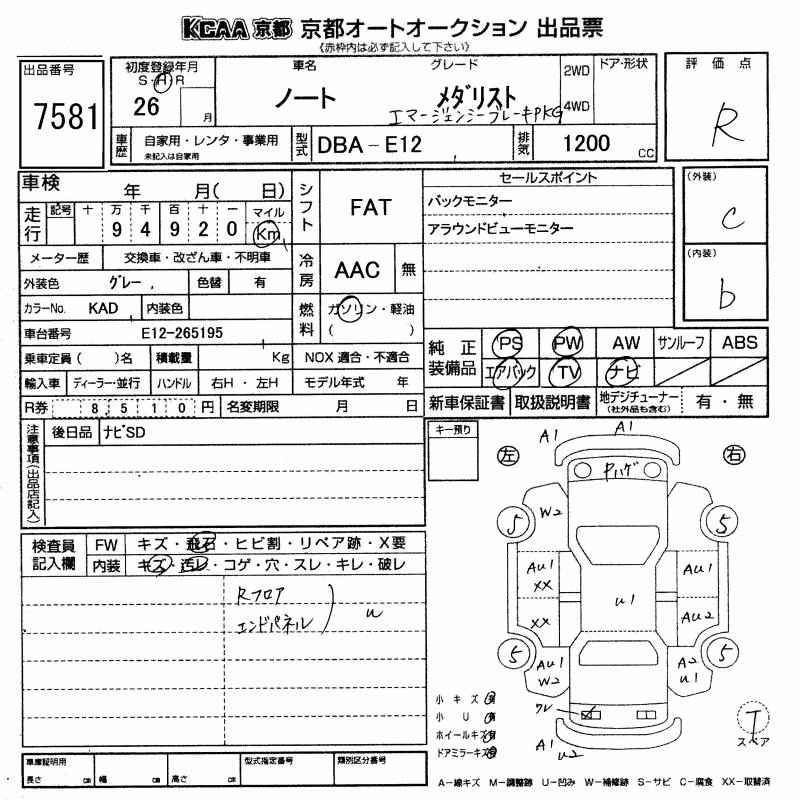 KCAA 京都 京都オートオークション 出品票
《赤枠内は必ず記入して下さい》
出品番号
7581
初度登録年月
S・A・R
26 月
車名
ノート
グレード
メダリスト
エマージェンシーブレーキPKG
2WD
4WD
ドア・形状
評価点
R
車歴
自家用・レンタ・事業用
未記入は自家用
型式
DBA－E12
排気
1200 CC
車検 年 月( 日)
走行
記号 十 万 千 百 十 一 マイル
9 4 9 2 0 Km
メーター歴 交換車・改ざん車・不明車
外装色 グレー 色替 有
カラーNo. KAD 内装色
車台番号 E12-265195
乗車定員 ( )名 積載量 Kg NOX 適合・不適合
輸入車 ディーラー・並行 ハンドル 右H・左H モデル年式 年
R券 8,510円 名変期限 月 日
シフト
FAT
冷房
AAC 無
燃料
ガソリン・軽油
( )
セールスポイント
バックモニター
アラウンドビューモニター
(外装)
C
(内装)
b
純正装備品
PS PW AW サンルーフ ABS
エアバック TV ナビ
新車保証書 取扱説明書 地デジチューナー (社外品も含む) 有・無
注意事項(出品店記入)
後日品 ナビSD
キー預り
検査員記入欄
FW キズ・飛石・ヒビ割・リペア跡・X要
内装 キズ・汚レ・コゲ・穴・スレ・キレ・破レ
Rフロア
エンドパネル
u
A1 A1
左 右
Pハゲ
W2
5 5
AU1
XX
AU1
U1
XX
AU2
5 5
AU1
W2
A2
U1
ワレ
A1
U2
小キズ 有
小U 有
ホイールキズ 有
ドアミラーキズ 有
T
スペア
車庫証明用
長さ cm 幅 cm 高さ cm
型式指定番号
類別区分番号
A－線キズ M－調整跡 U－凹み W－補修跡 S－サビ C－腐食 XX－取替済